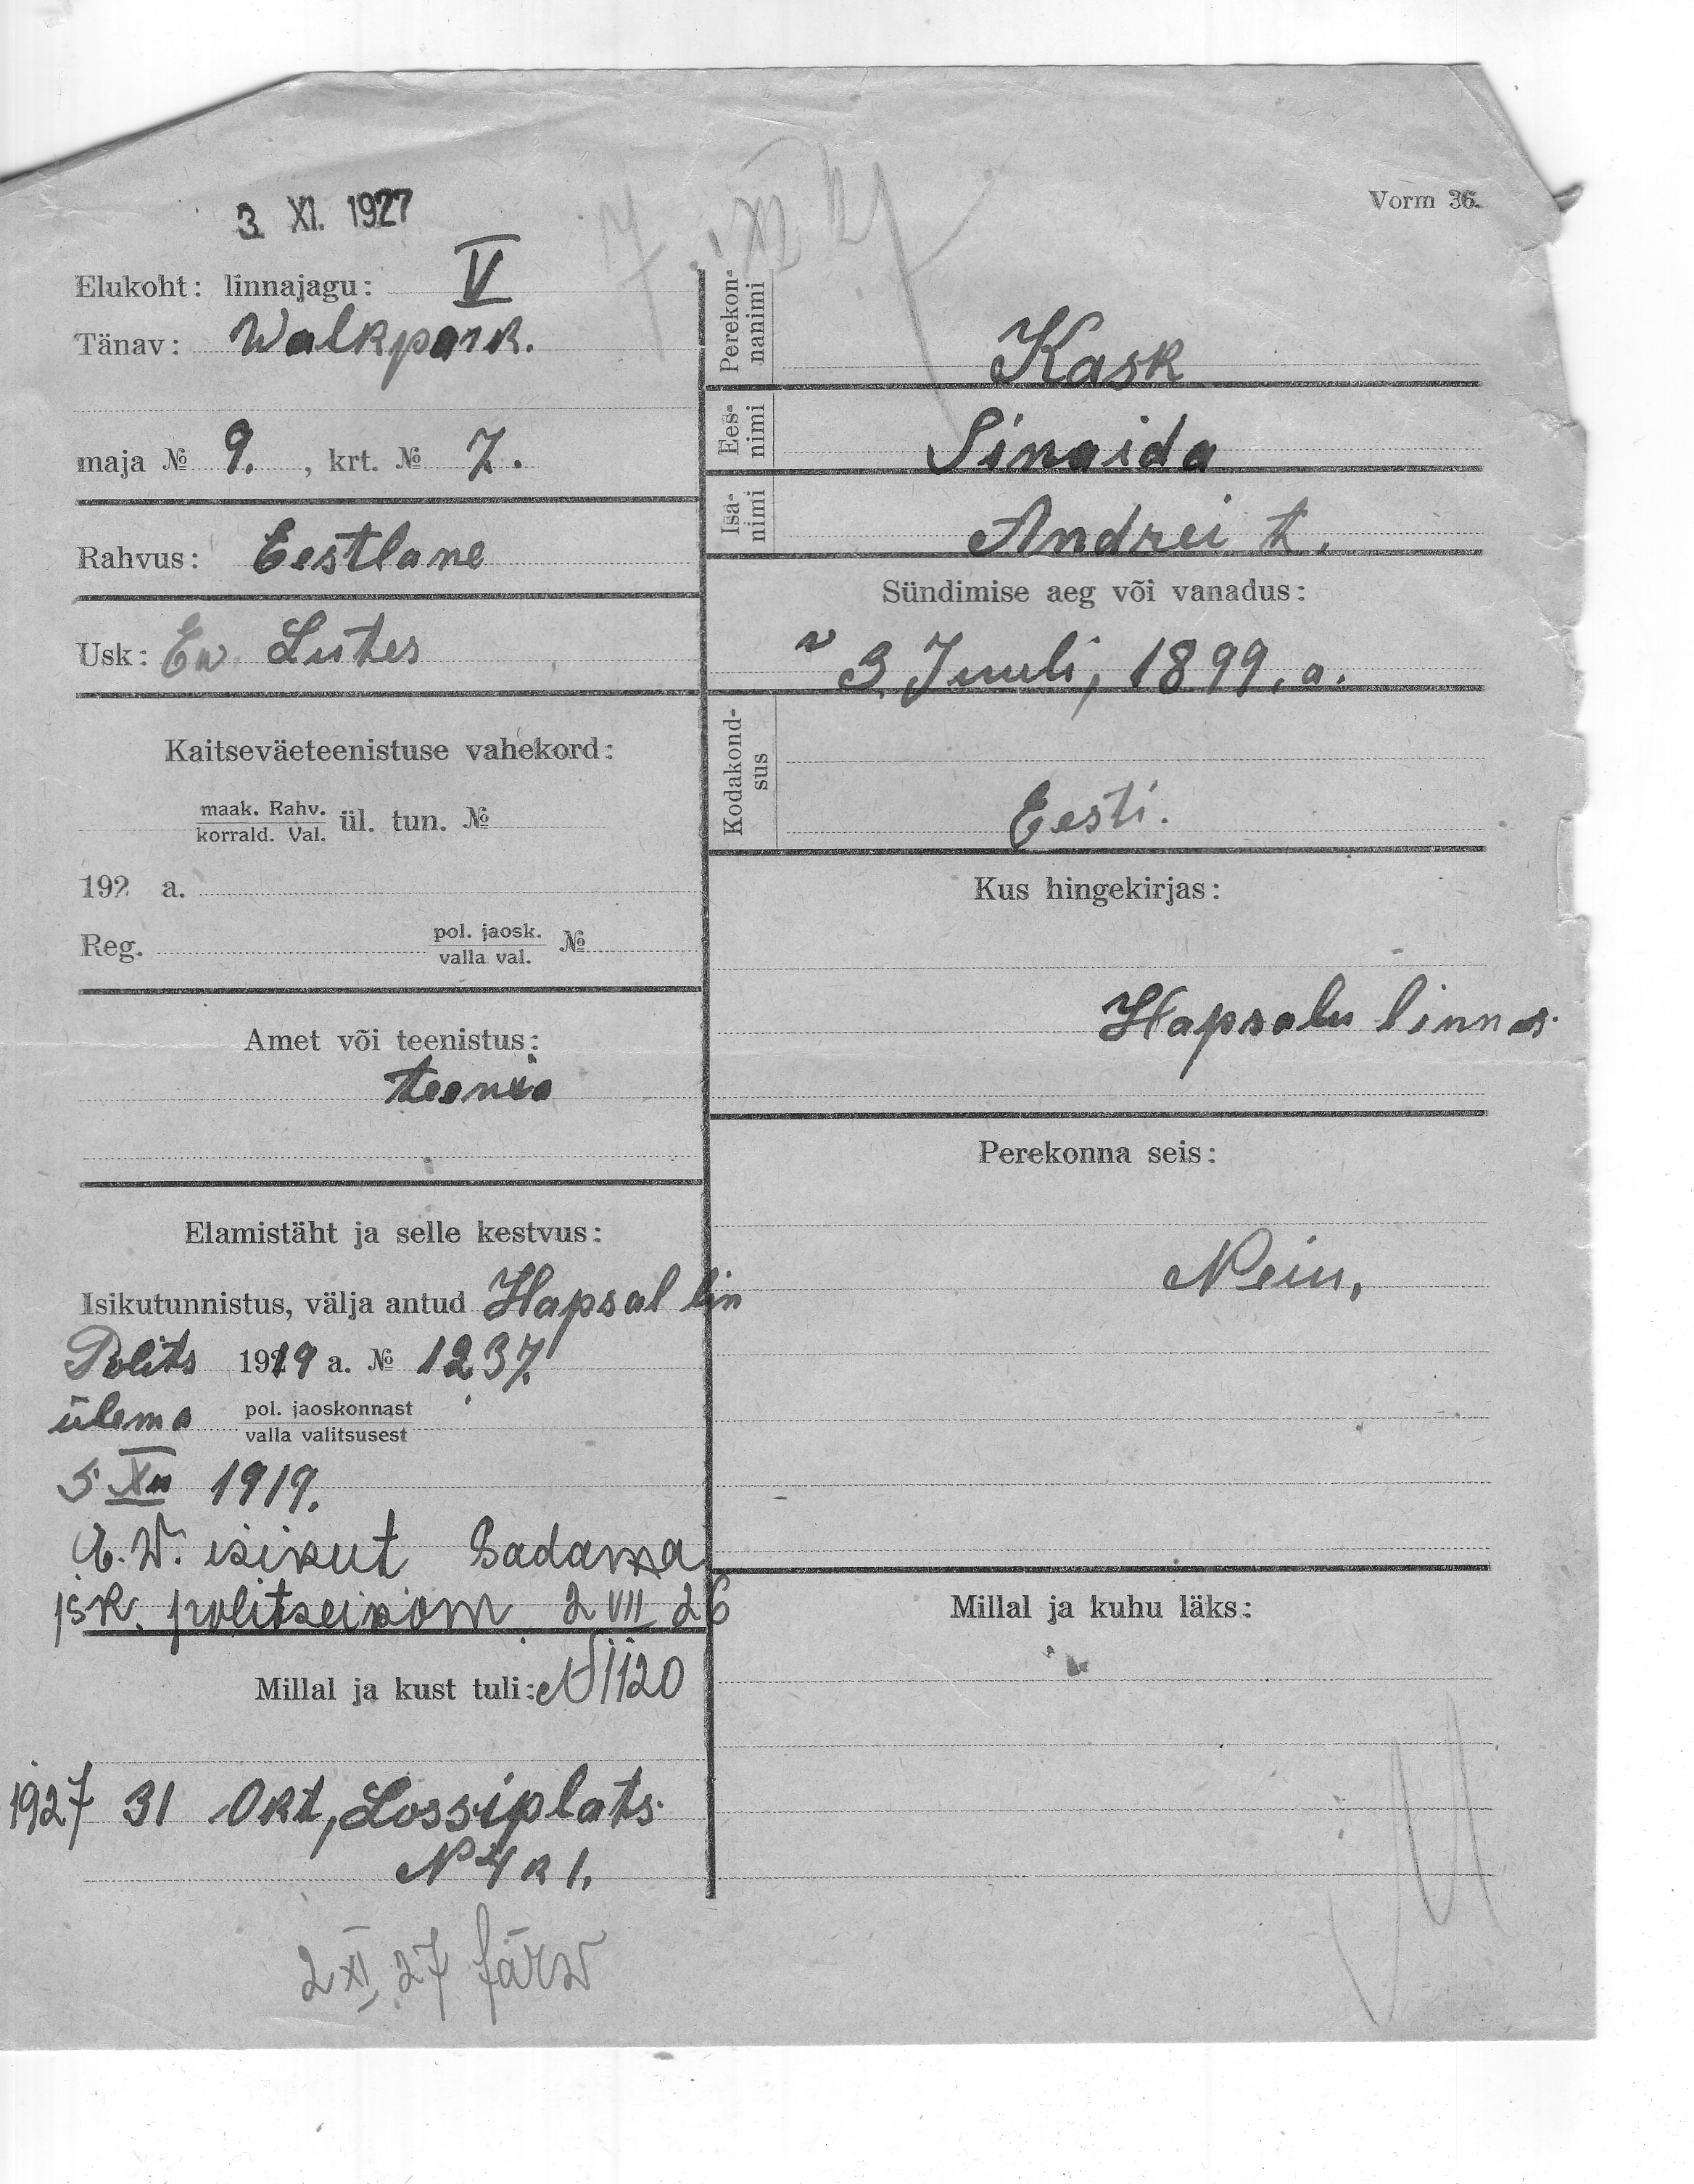 3. XI. 1927
7. XI 27
Vorm 36.
Elukoht: linnajagu: V
Tänav: Walkpark.
maja № 9. , krt. № 7.
Rahvus: Eestlane
Usk: Ew. Luters
Kaitseväeteenistuse vahekord:
maak. Rahv.
korrald. Val. ül. tun. №
192 a.
Reg. pol. jaosk. №
valla val.
Amet või teenistus:
teenia
Elamistäht ja selle kestvus:
Isikutunnistus, välja antud Hapsal lin
Polits 1919 a. № 1237.
ülema pol. jaoskonnast
valla valitsusest
5 XII 1919.
E.W. isikut Sadama
jsk. politseikom 2 VII 26
Millal ja kust tuli: N 1120
1927 31 Okt, Lossiplats
N 4 k 1.
2 XI 27 Järw
Perekon-
nanimi
Kask
Ees-
nimi
Sinaida
Isa-
nimi
Andrei t.
Sündimise aeg või vanadus:
3. Juuli, 1899. a.
Kodakond-
sus
Eesti.
Kus hingekirjas:
Hapsalu linnas.
Perekonna seis:
Neiu,
Millal ja kuhu läks: